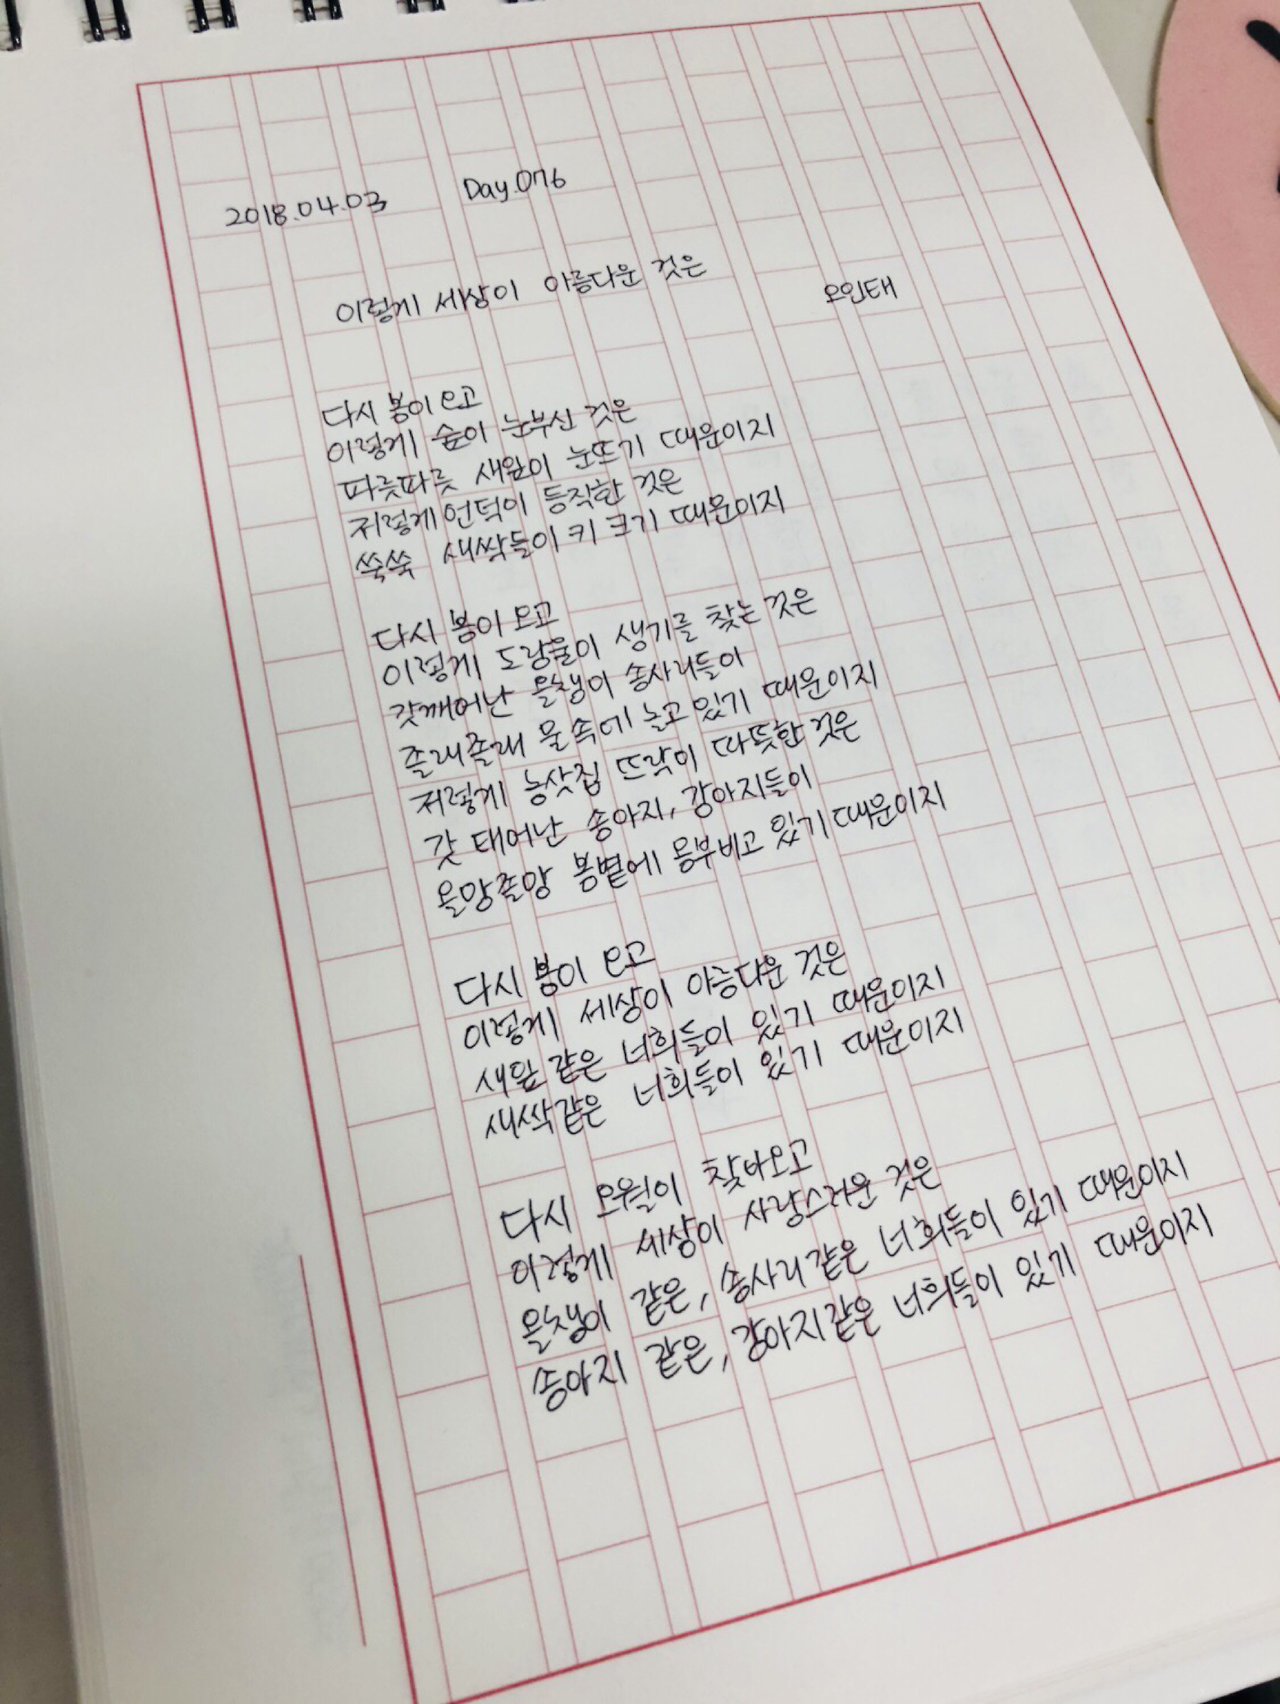 2018.04.03 Day.076
이렇게 세상이 아름다운 것은 오인태
다시 봄이 오고
이렇게 숲이 눈부신 것은
파릇파릇 새잎이 눈뜨기 때문이지
저렇게 언덕이 듬직한 것은
쑥쑥 새싹들이 키 크기 때문이지
다시 봄이 오고
이렇게 도랑물이 생기를 찾는 것은
갓깨어난 올챙이 송사리들이
졸래졸래 물 속에 놀고 있기 때문이지
저렇게 농삿집 뜨락이 따뜻한 것은
갓 태어난 송아지, 강아지들이
올망졸망 봄볕에 몸부비고 있기 때문이지
다시 봄이 오고
이렇게 세상이 아름다운 것은
새잎 같은 너희들이 있기 때문이지
새싹같은 너희들이 있기 때문이지
다시 오월이 찾아오고
이렇게 세상이 사랑스러운 것은
올챙이 같은, 송사리같은 너희들이 있기 때문이지
송아지 같은, 강아지같은 너희들이 있기 때문이지